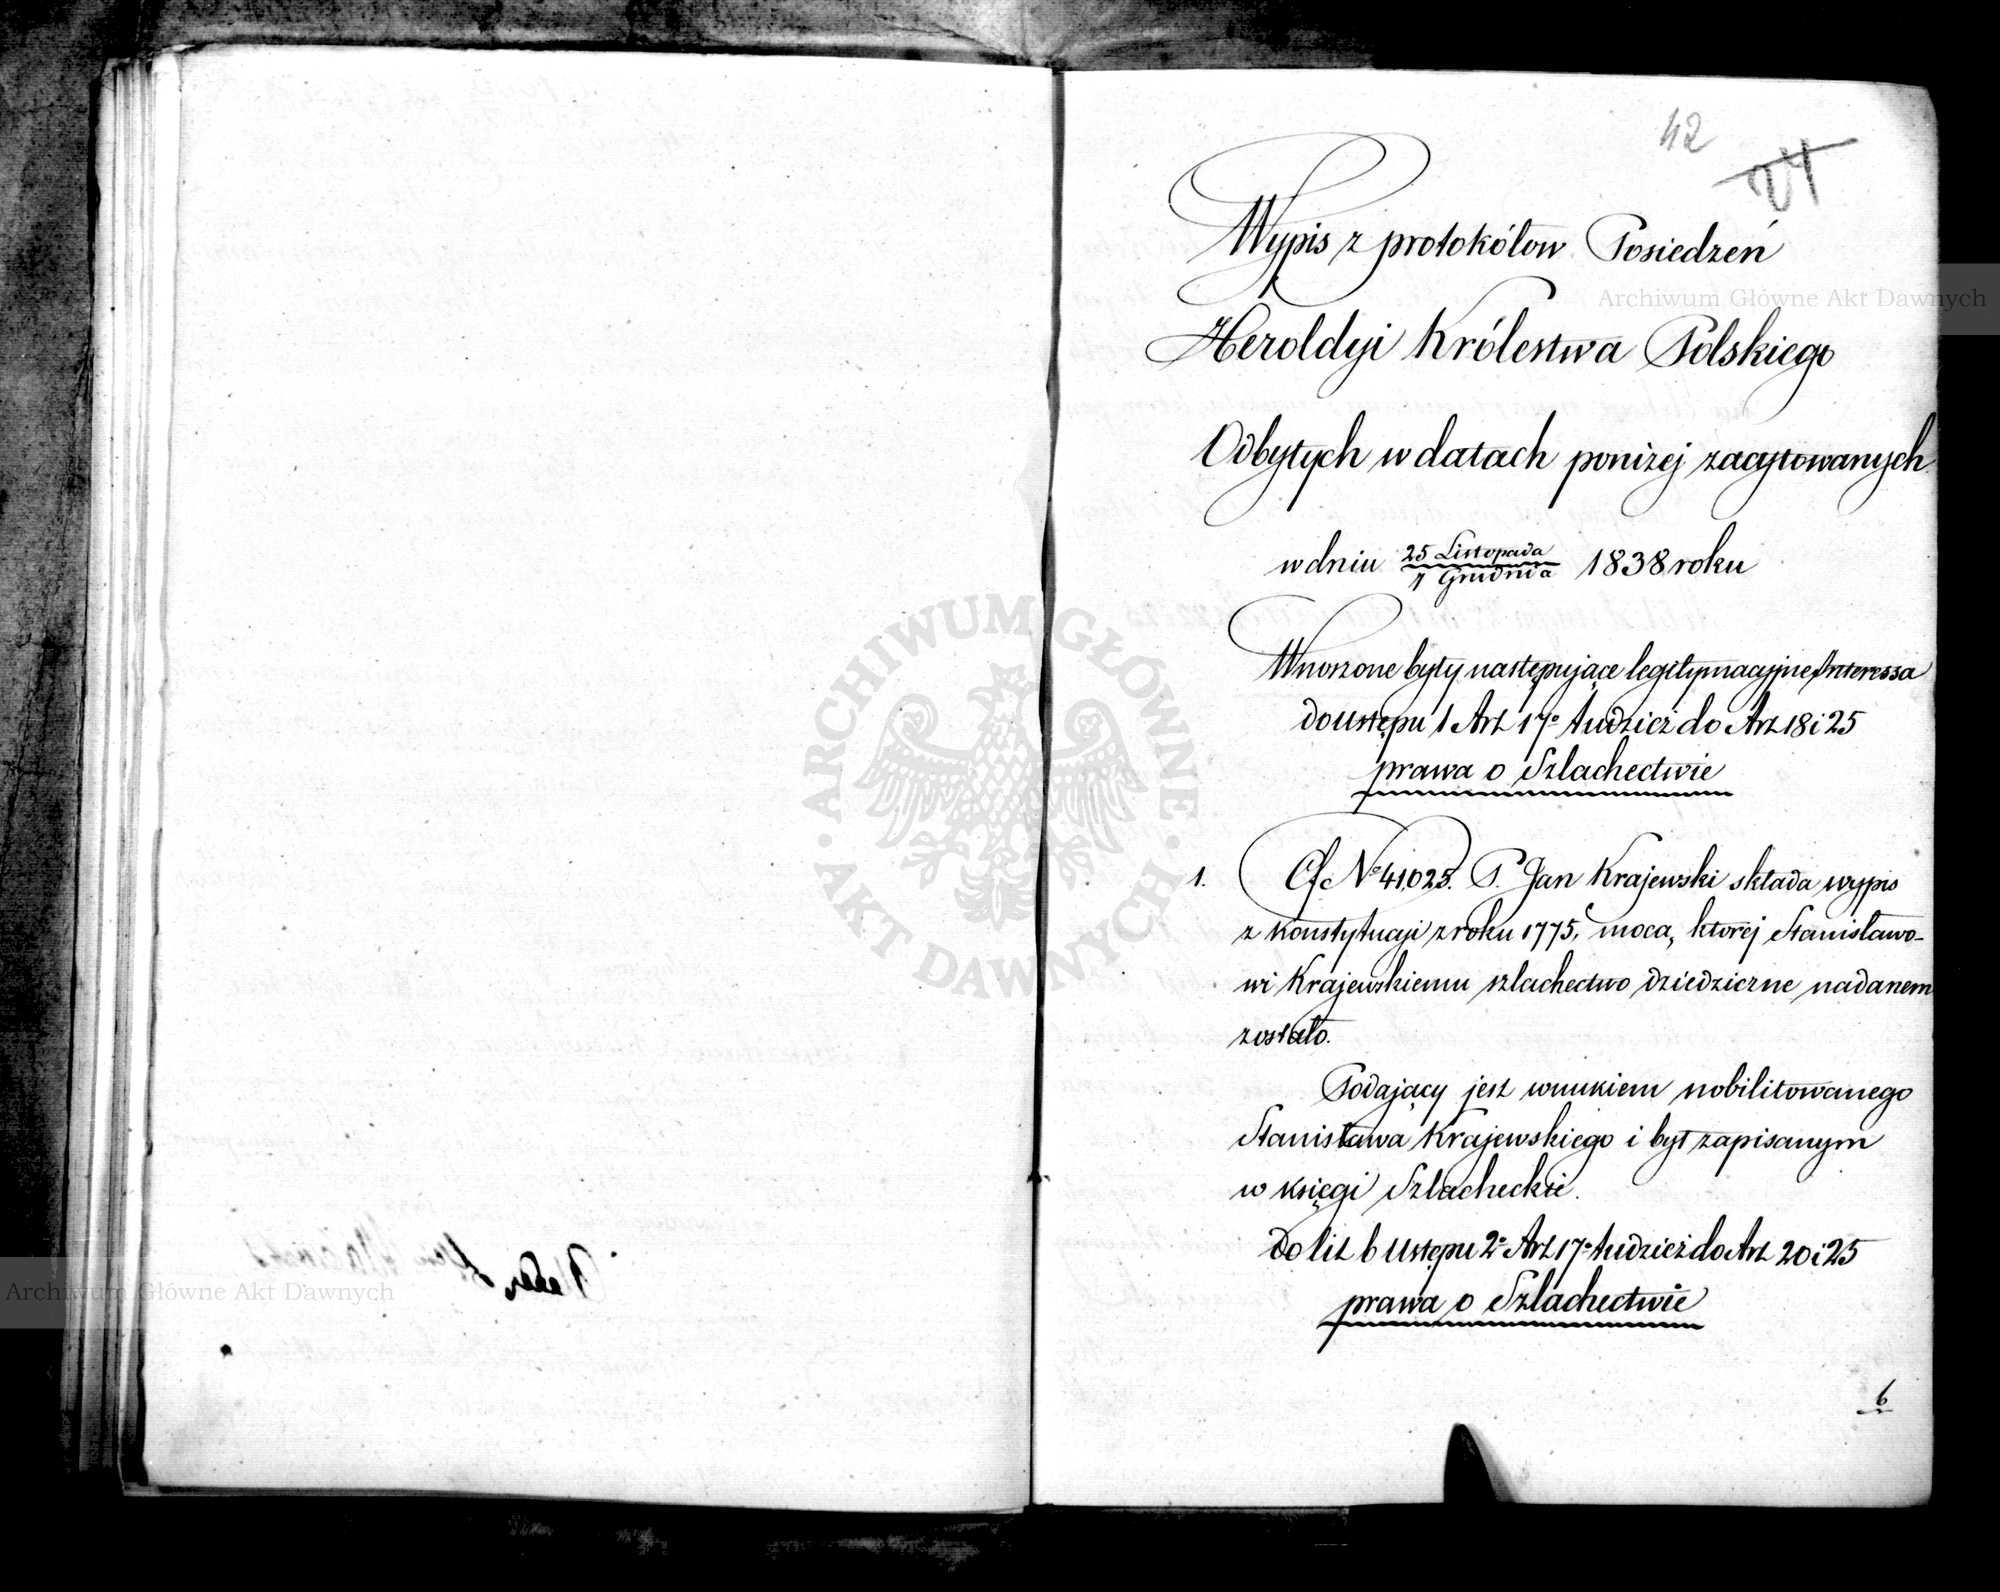 42
24
Wypis z protokółow Posiedzeń
Heroldyi Królestwa Polskiego
Odbytych w datach poniżej zacytowanych
w dniu 25 Listopada / 7 Grudnia 1838 roku
Wnoszone były następujące legitymacyjne Interessa
do ustępu 1 Art 17º tudzież do Art 18 i 25
prawa o Szlachectwie
1. Of Nº 41025. P. Jan Krajewski składa wypis
z konstytucyi z roku 1775, mocą, ktorej Stanisławo-
wi Krajewskiemu szlachectwo dziedziczne nadanem
zostało.
Podający jest wnukiem nobilitowanego
Stanisława Krajewskiego i był zapisanym
w księgi Szlacheckie.
Do lit b Ustępu 2º Art 17º tudzież do Art 20 i 25
prawa o Szlachectwie
6
Archiwum Główne Akt Dawnych
Archiwum Główne Akt Dawnych
ARCHIWUM GŁÓWNE · AKT DAWNYCH ·